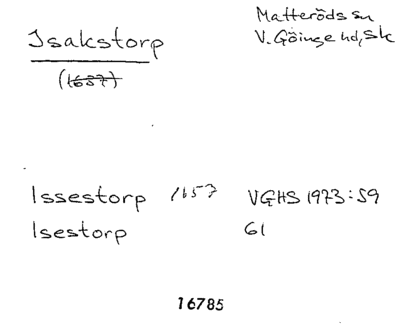 Isakstorp
Matteröds sn
V. Göinge hd, Sk
(1657)
Issestorp 1657 VGHS 1973:59
Isestorp 61
16785